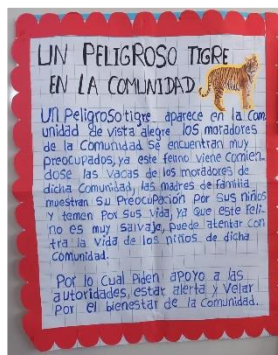 UN PELIGROSO TIGRE
EN LA COMUNIDAD
Un Peligroso tigre aparece en la Com
unidad de vista alegre los moradores
de la Comunidad se encuentran muy
preocupados, ya este felino viene Comien
dose las vacas de los moradores de
dicha Comunidad, las madres de familia
muestran su Preocupación Por sus niños
y temen Por sus vida, ya que este Feli-
no es muy salvaje, Puede atentar con
tra la vida de los niños de dicha
Comunidad.
Por lo Cual Piden apoyo a las
autoridades, estar alerta y velar
Por el bienestar de la Comunidad.